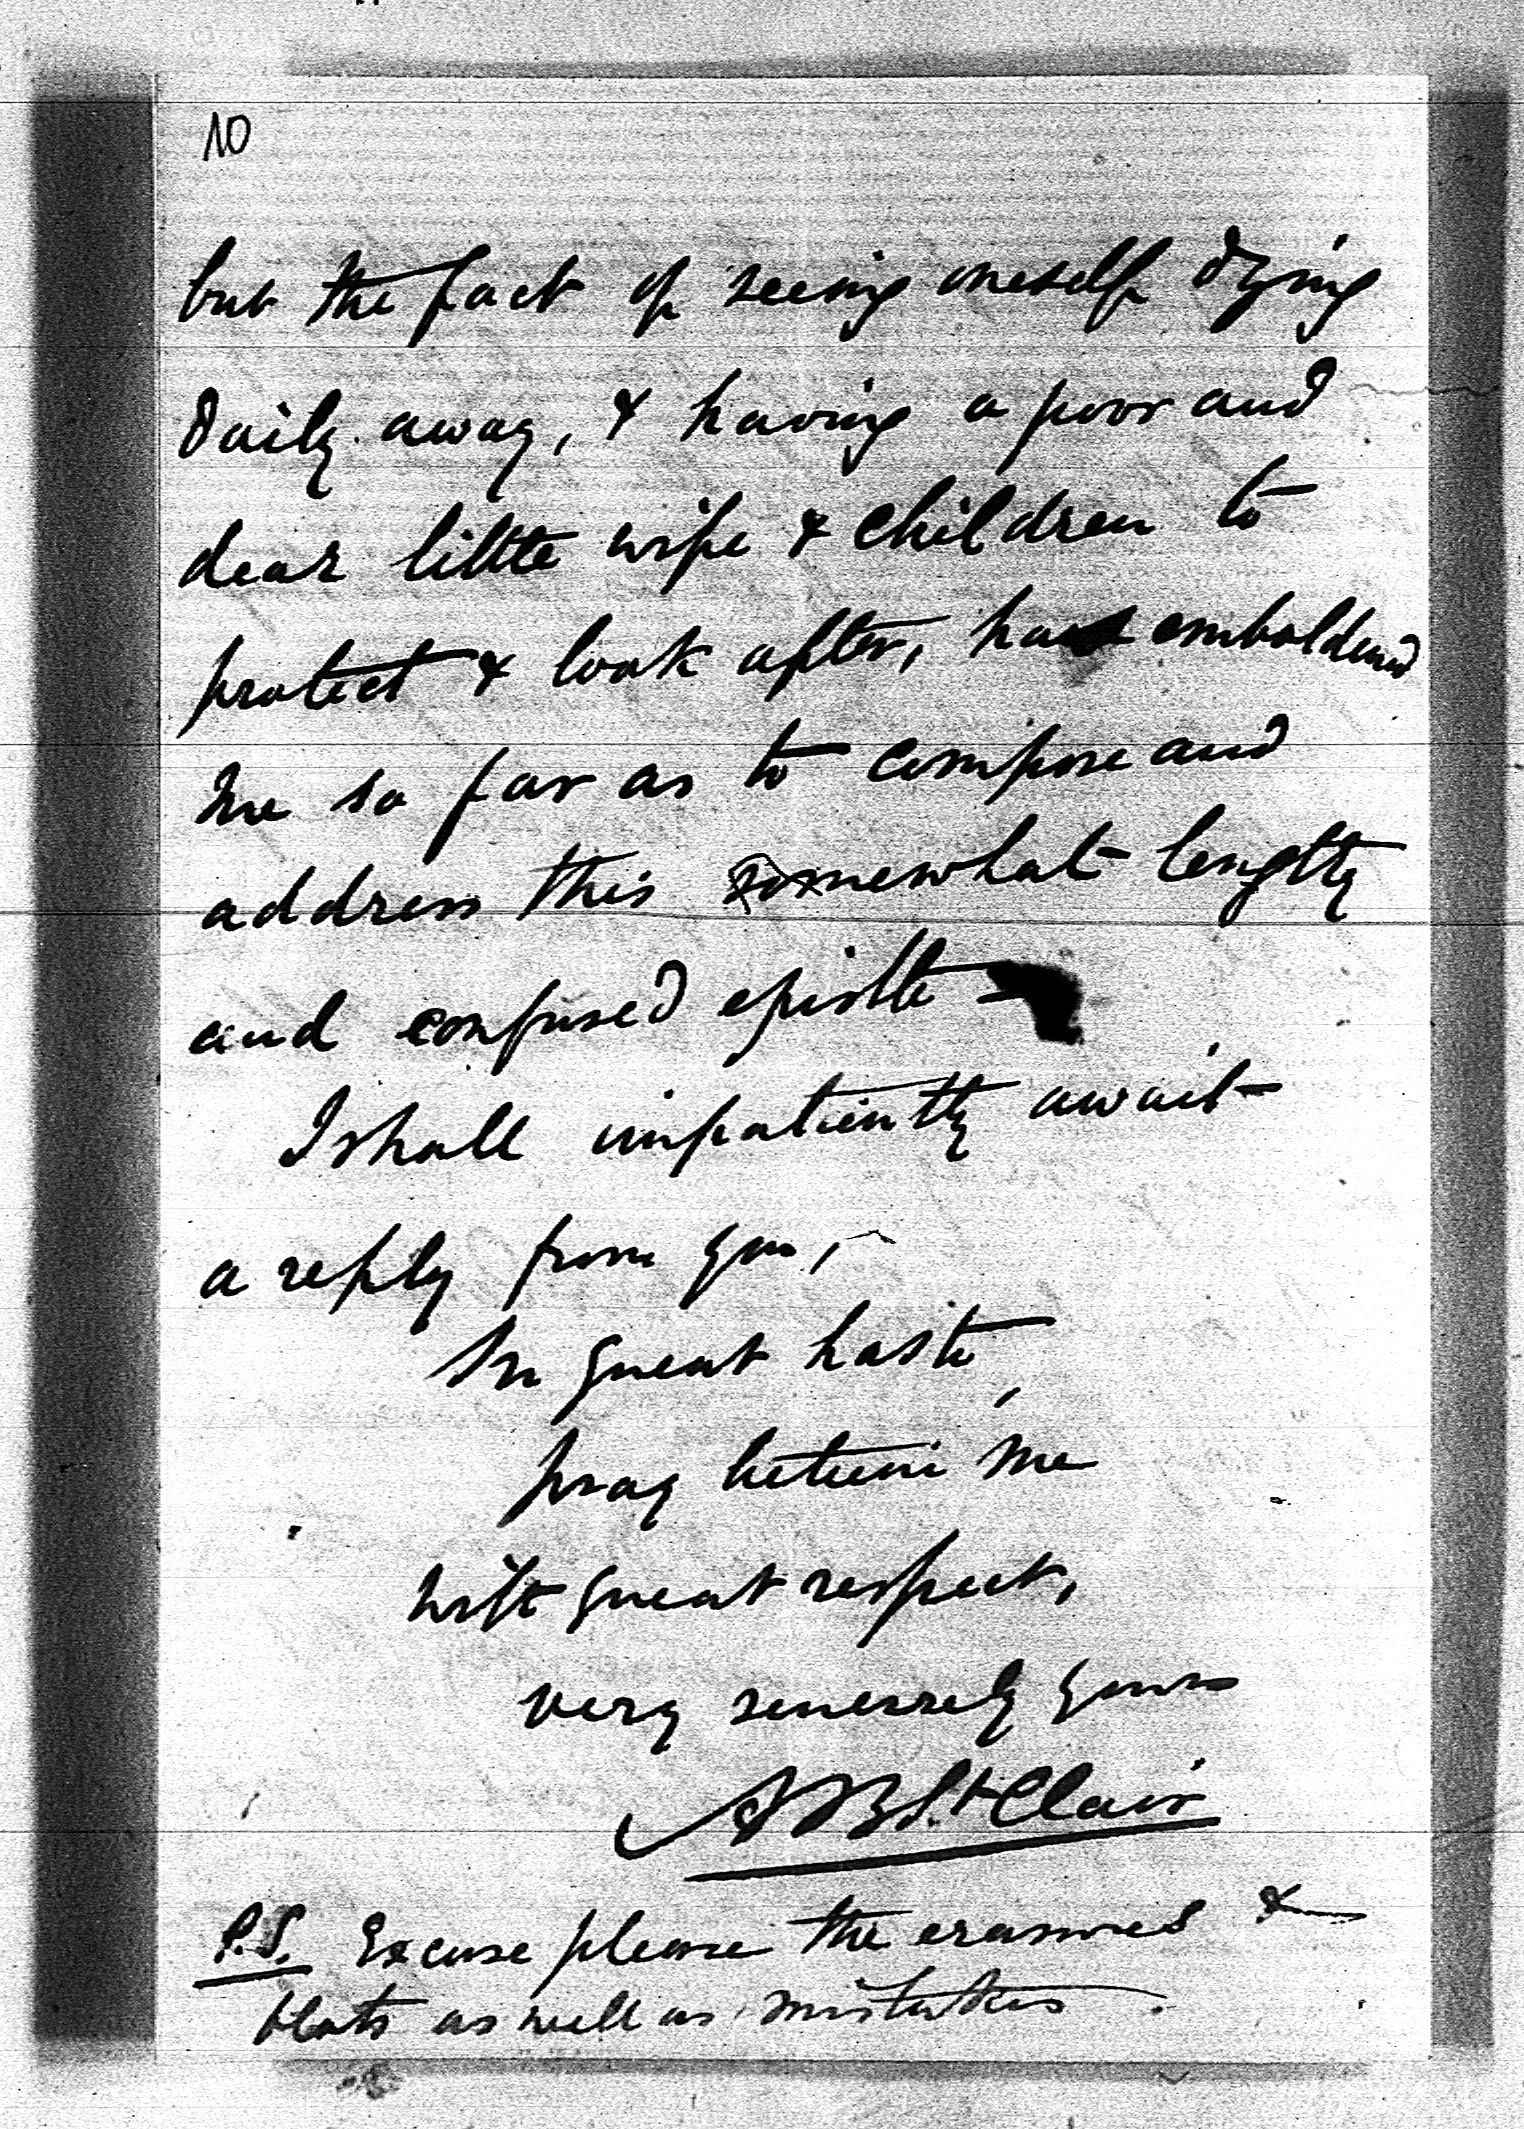 10
but the fact of seeing oneself dying
daily away, & having a poor and
dear little wife & children to
protect & look after, has emboldened
me so far as to compose and
address this somewhat lengthy
and confused epistle
I shall impatiently await
a reply from you,
In great haste,
pray believe me
with great respect,
very sincerely yours
St Clair
P.S. Excuse please the erasures &
blots as well as mistakes.